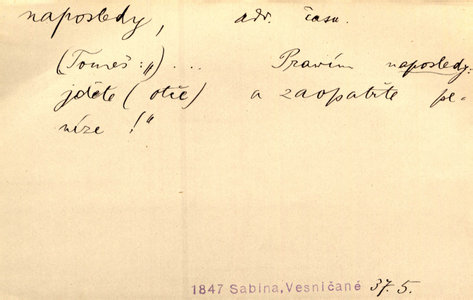 naposledy, adv. času.
(Tomeš:„) ... Pravím naposledy.
jděte (otče) a zaopatřte pe-
níze!"
1847 Sabina, Vesničané 37. 5.